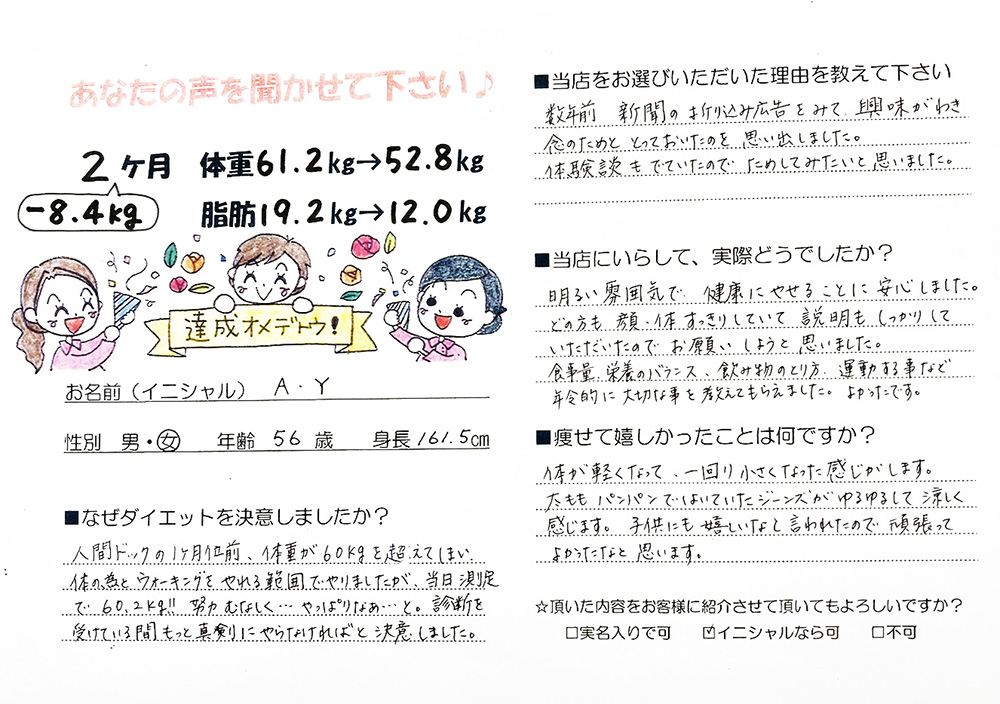 あなたの声を聞かせて下さい♪
2ヶ月 体重61.2kg→52.8kg
-8.4kg 脂肪19.2kg→12.0kg
達成オメデトウ！
お名前（イニシャル） A・Y
性別 男・女 年齢 56 歳 身長 161.5cm
■なぜダイエットを決意しましたか？
人間ドックの1ヶ月位前、体重が60kgを超えてしまい
体の為と ウォーキングを やれる範囲でやりましたが、当日測定
で 60.2kg!! 努力むなしく… やっぱりなぁ…と。診断を
受けている間もっと真剣にやらなければと決意しました。
■当店をお選びいただいた理由を教えて下さい
数年前 新聞の折り込み広告をみて、興味がわき
念のためと とっておいたのを 思い出しました。
体験談もでていたので ためしてみたいと思いました。
■当店にいらして、実際どうでしたか？
明るい雰囲気で 健康にやせることに 安心しました。
どの方も 顔・体すっきりしていて 説明も しっかりして
いただいたので お願いしようと 思いました。
食事量、栄養のバランス、飲み物のとり方、運動する事など
年令的に 大切な事を教えてもらえました。よかったです。
■痩せて嬉しかったことは何ですか？
体が軽くなって、一回り小さくなった感じがします。
太もも パンパンではいていたジーンズがゆるゆるして 涼しく
感じます。子供にも 嬉しいなと言われたので 頑張って
よかったなと 思います。
☆頂いた内容をお客様に紹介させて頂いてもよろしいですか？
□実名入りで可 ☑イニシャルなら可 □不可